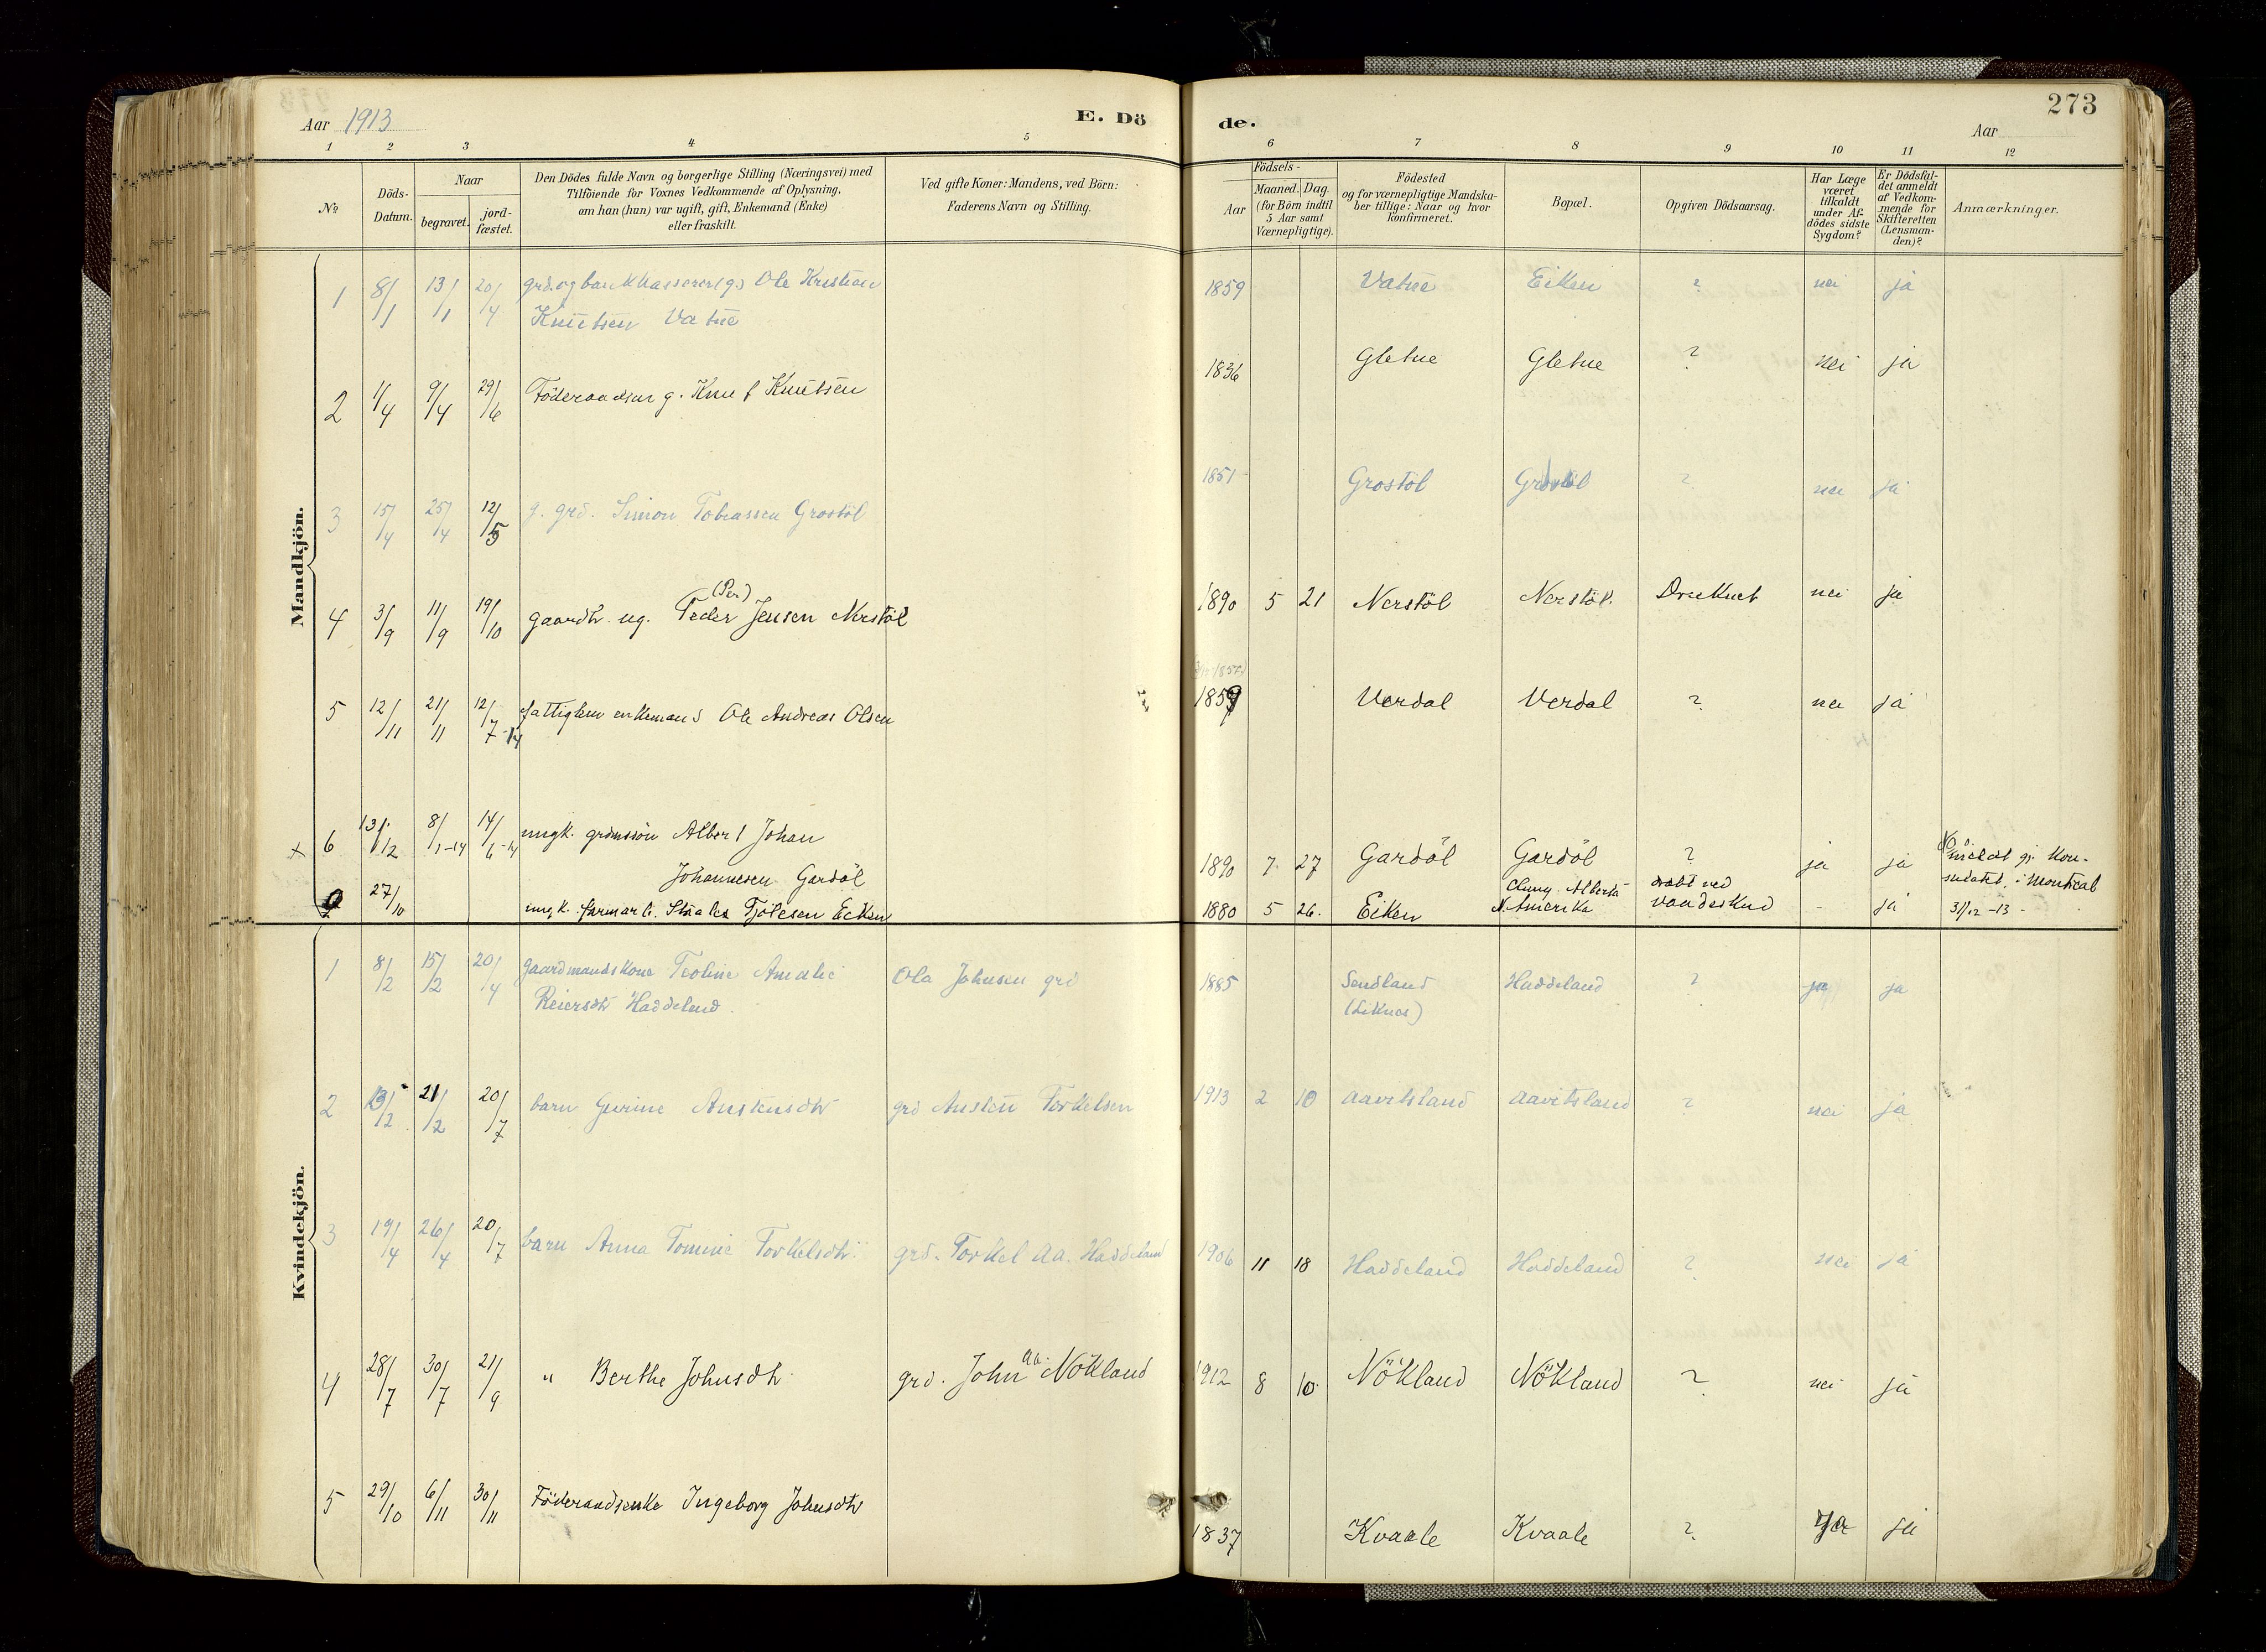 273
Aar 1913
E. Dö
de.
Aar
1 2 3 4 5 6 7 8 9 10 11 12
№
Döds-Datum.
Naar
begravet.
jord-fæstet.
Den Dödes fulde Navn og borgerlige Stilling (Næringsvei) med
Tilföiende for Voxnes Vedkommende af Oplysning,
om han (hun) var ugift, gift, Enkemand (Enke)
eller fraskilt.
Ved gifte Koner: Mandens, ved Börn:
Faderens Navn og Stilling.
Födsels-
Aar
Maaned. Dag.
(for Börn indtil
5 Aar samt
Værnepligtige).
Födested
og for værnepligtige Mandska-
ber tillige: Naar og hvor
konfirmeret.
Bopæl.
Opgiven Dödsaarsag.
Har Læge
været
tilkaldt
under Af-
dödes sidste
Sygdom?
Er Dödsfal-
det anmeldt
af Vedkom-
mende for
Skifteretten
(Lensman-
den)?
Anmærkninger.
Mandkjön.
1 8/1 13/1 20/4 grd. og bankkasserer (g.) Ole Kristian 1859 Vatne Eiken ? nei ja
Knutsen Vatne
2 1/4 9/4 29/6 Föderaadsm g. Knut Knutsen 1836 Gletne Gletne ? nei ja
3 15/4 25/4 12/5 g. grd. Simon Tobiassen Grostöl 1851 Grostöl Grostöl ? nei ja
(Per)
4 3/9 11/9 19/10 gaardb. ug. Peder Jensen Nerstöl 1890 5 21 Nerstöl Nerstöl. Druknet nei ja
5 12/11 21/11 12/7-14 fattiglem enkemand Ole Andreas Olsen 1859 Verdal Verdal ? nei ja
x 6 13/12 8/1-14 14/6-14 ungk. grdmssön Albert Johan
Johannesen Gardöl 1890 7 27 Gardöl Gardöl ? ja ja
7 27/10 ungk. farmarb. Staale Tjölesen Eiken 1880 5 26. Eiken Cluny Alberta N. Amerika dræbt ved vaadeskud - ja
meldt gj. kon-
sulatet i Montreal
31/12-13-
Kvindekjön.
1 8/2 15/2 20/4 gaardmandskone Teoline Amalie Ola Johnsen grd 1885 Sandland Haddeland ? ja ja
Reiersdtr Haddeland. (Liknes)
2 13/2 21/2 20/7 barn Gurine Austensdtr grd Austen Torkelsen 1913 2 10 Aavitsland Aavitsland ? nei ja
3 19/4 26/4 20/7 barn Anna Tomine Torkelsdtr. grd. Torkel Aa. Haddeland 1906 11 18 Haddeland Haddeland ? nei ja
4 28/7 30/7 21/9 " Berthe Johnsdtr. grd. John Aa. Nökland 1912 8 10 Nökland Nökland ? nei ja
5 29/10 6/11 30/11 Föderaadsenke Ingeborg Johnsdtr 1837 Kvaale Kvaale ? Ja ja